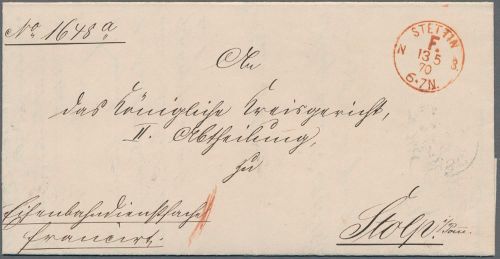 No 1648 a
STETTIN
F.
N. B.
13 5
70
6-7N.
An
das Königliche Kreisgericht,
II. Abtheilung,
zu
Stolp i/Pom.
Eisenbahndienstsache
francirt.